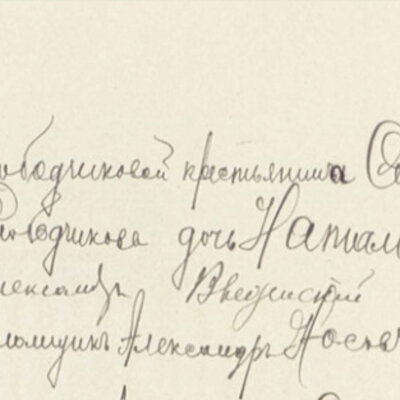 ободчиковой крестьянина
ободчикова дочь Натал
лександръ Введенский
ломщикъ Александръ Носов